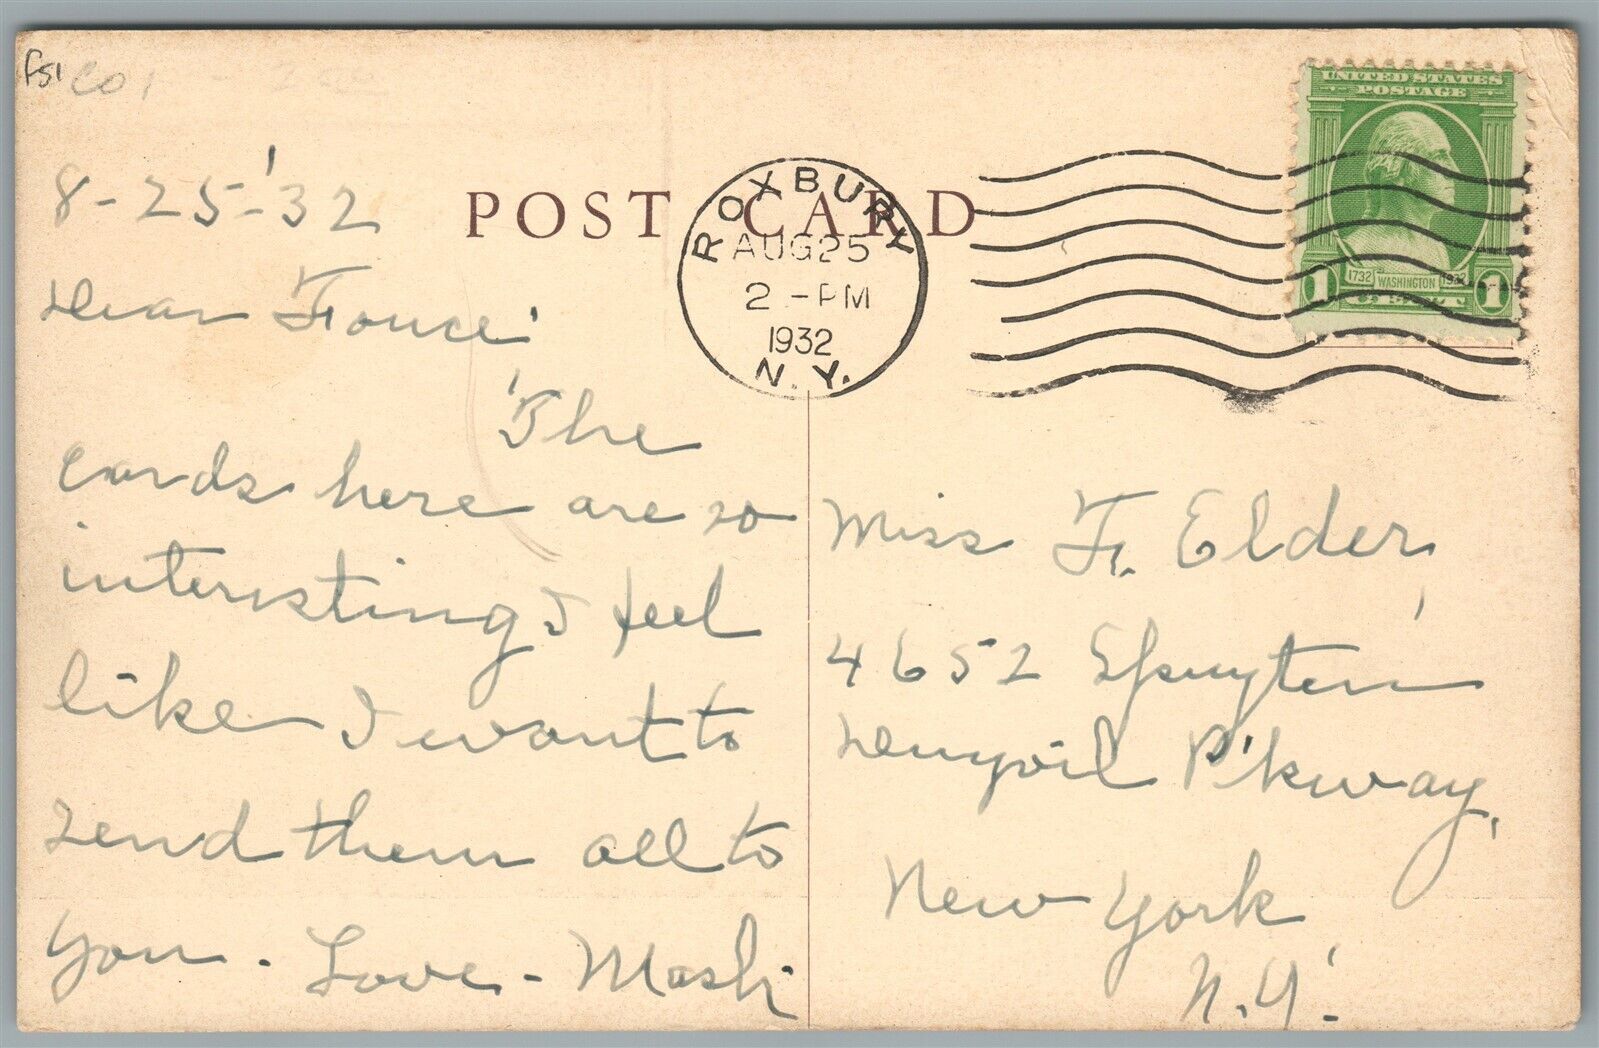 8-25-'32
Dear
The
cards here are so
interesting I feel
like I want to
send them all to
you - Love -
POST CARD
ROXBURY
AUG 25
2 - PM
1932
N.Y.
UNITED STATES
POSTAGE
1732 WASHINGTON 1932
1 CENT 1
Miss F. Elder,
4652 Spuyten
Duyvil P'kway,
New York
N.Y.